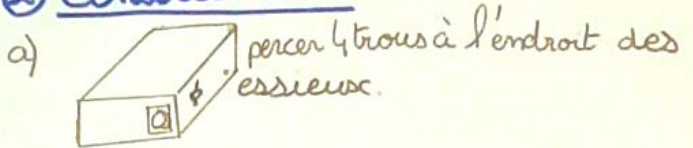 a) percer 4 trous à l'endroit des
essieux.